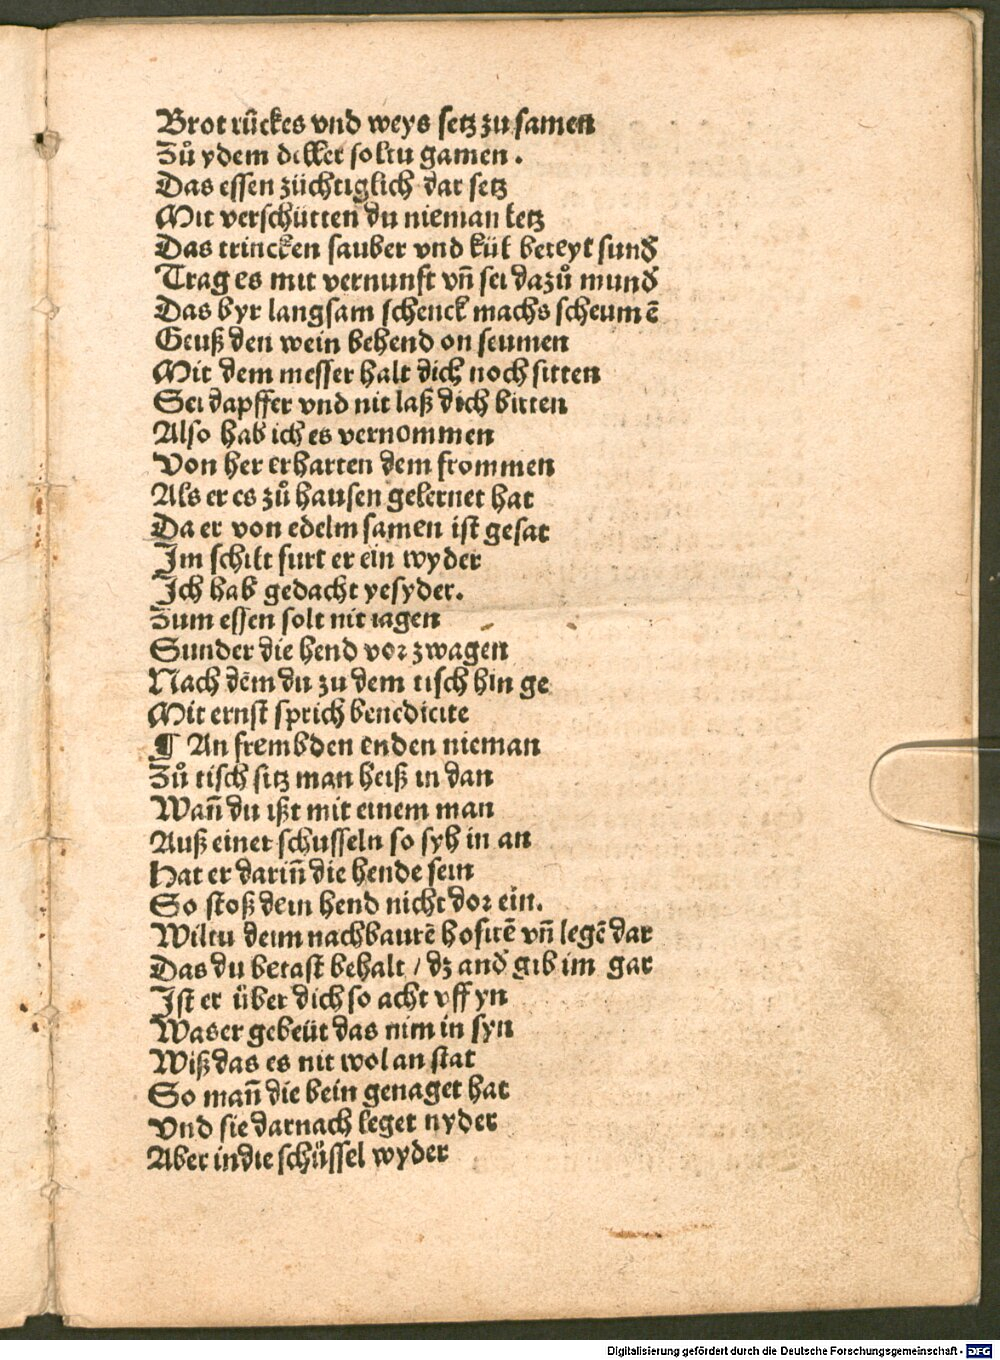 Brot rückes vnd weys setz zu samen
Zů ydem deller soltu gamen.
Das essen züchtiglich dar setz
Mit verschütten du nieman letz
Das trincken sauber vnd kül bereyt sund
Trag es mit vernunft vñ sei dazů mund
Das byr langsam schenck machs scheumē
Geuß den wein behend on seumen
Mit dem messer halt dich noch sitten
Sei dapffer vnd nit laß dich bitten
Also hab ich es vernommen
Von her erharten dem frommen
Als er es zů hausen gelernet hat
Da er von edelm samen ist gesat
Im schilt furt er ein wyder
Ich hab gedacht yesyder.
Zum essen solt nit iagen
Sunder die hend vor zwagen
Nach dem du zu dem tisch hin ge
Mit ernst sprich benedicite
¶ An frembden enden nieman
Zů tisch sitz man heiß in dan
Wañ du ißt mit einem man
Auß einer schusseln so syh in an
Hat er dariñ die hende sein
So stoß dein hend nicht dor ein.
Wiltu deim nachbaurē hofirē vñ legē dar
Das du betast behalt / dz and gib im gar
Ist er über dich so acht vff yn
Was er gebeüt das nim in syn
Wiß das es nit wol an stat
So mañ die bein genaget hat
Vnd sie darnach leget nyder
Aber in die schüssel wyder
Digitalisierung gefördert durch die Deutsche Forschungsgemeinschaft - DFG